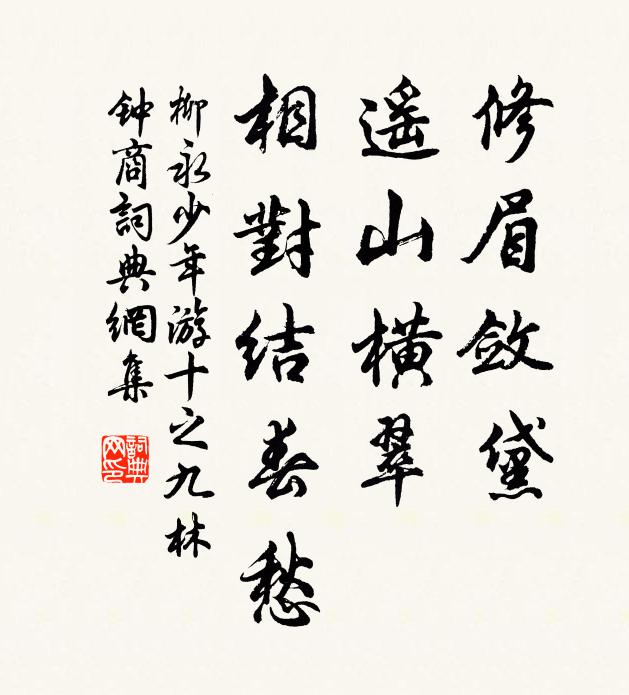 修眉斂黛
遥山橫翠
相對結春愁
柳永少年游十之九林
钟商詞典網集
詞典网印